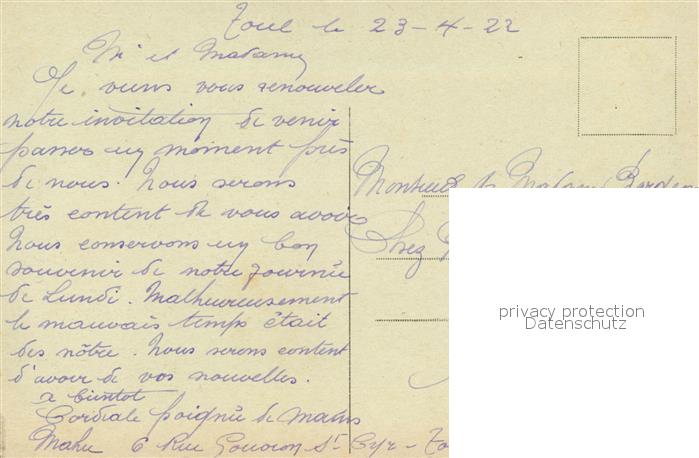 Toul le 23-4-22
Mr et Madame
Je viens vous renouveler
notre invitation de venir
passer un moment près
de nous. Nous serons
très content de vous avoir
Nous conservons un bon
souvenir de notre journée
de Lundi. Malheureusement
le mauvais temps était
des nôtre. Nous serons content
d'avoir de vos nouvelles.
a bientot
Cordiale poignée de mains
Mahu 6 Rue Gouvion St Cyr - To
Monsieur & Madame
Chez
privacy protection
Datenschutz